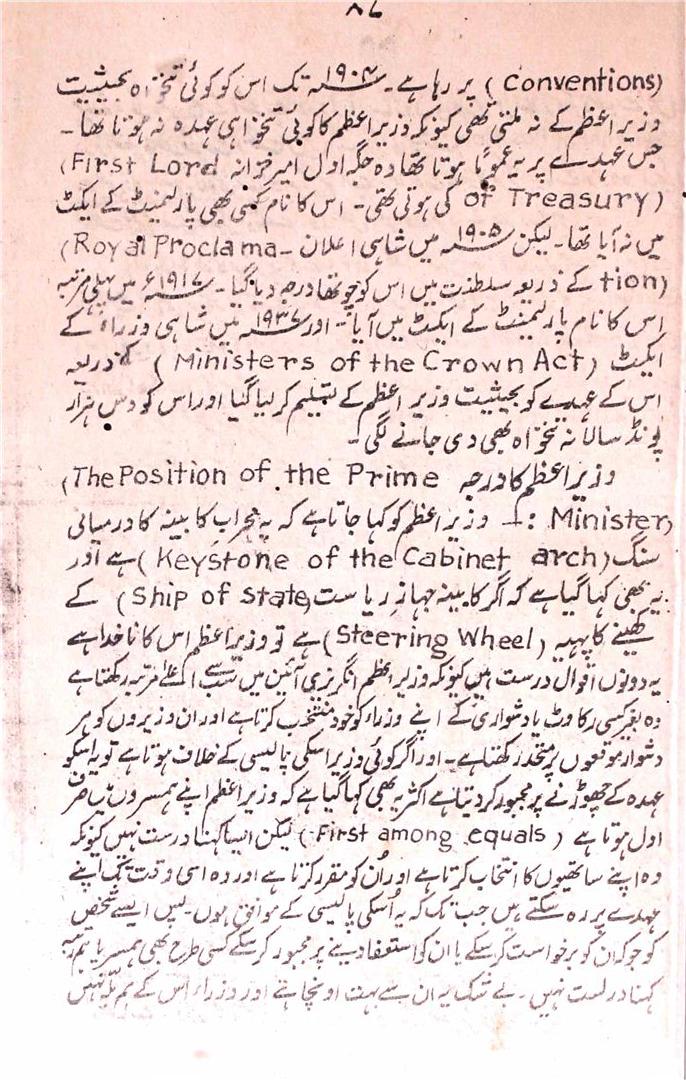 ۸۶
(Conventions) پر رہا ہے۔ ۱۹۰۴ء تک اس کو کوئی تنخواہ بحیثیت
وزیر اعظم کے نہ ملتی تھی کیونکہ وزیر اعظم کا کوئی تنخواہی عہدہ نہ ہوتا تھا۔
جس عہدے پر یہ عموماً ہوتا تھا وہ جگہ اول امیر خزانہ (First Lord
of Treasury) کی ہوتی تھی۔ اس کا نام کبھی بھی پارلیمنٹ کے ایکٹ
میں نہ آیا تھا۔ لیکن ۱۹۰۵ء میں شاہی اعلان (Royal Proclama-
tion) کے ذریعہ سلطنت میں اس کو چوتھا درجہ دیا گیا۔ ۱۹۱۷ء میں پہلی مرتبہ
اس کا نام پارلیمنٹ کے ایکٹ میں آیا۔ اور ۱۹۳۷ء میں شاہی وزراء کے
ایکٹ (Ministers of the Crown Act) کے ذریعہ
اس کے عہدے کو بحیثیت وزیر اعظم کے تسلیم کر لیا گیا اور اس کو دس ہزار
پونڈ سالانہ تنخواہ بھی دی جانے لگی۔
وزیر اعظم کا درجہ (The Position of the Prime
Minister) :۔ وزیر اعظم کو کہا جاتا ہے کہ یہ محراب کابینہ کا درمیانی
سنگ (Keystone of the Cabinet arch) ہے اور
یہ بھی کہا گیا ہے کہ اگر کابینہ جہازِ ریاست (Ship of State) کے
کھینے کا پہیہ (Steering Wheel) ہے تو وزیر اعظم اس کا ناخدا ہے
یہ دونوں اقوال درست ہیں کیونکہ وزیر اعظم انگریزی آئین میں سب سے اعلیٰ مرتبہ رکھتا ہے
وہ بغیر کسی رکاوٹ یا دشواری کے اپنے وزراء کو خود منتخب کرتا ہے اور ان وزیروں کو ہر
دشوار موقعوں پر متحد رکھتا ہے۔ اور اگر کوئی وزیر اسکی پالیسی کے خلاف ہوتا ہے تو یہ اسکو
عہدہ کے چھوڑنے پر مجبور کر دیتا ہے اکثر یہ بھی کہا گیا ہے کہ وزیر اعظم اپنے ہمسروں میں صرف
اول ہوتا ہے (First among equals) لیکن ایسا کہنا درست نہیں کیونکہ
وہ اپنے ساتھیوں کا انتخاب کرتا ہے اور اُن کو مقرر کرتا ہے اور وہ اسی وقت تک اپنے
عہدے پر رہ سکتے ہیں جب تک کہ یہ اُسکی پالیسی کے موافق ہوں۔ پس ایسے شخص
کو جو کہ ان کو برخواست کر سکے یا ان کو استعفا دینے پر مجبور کر سکے کسی طرح بھی ہمسر یا ہم رتبہ
کہنا درست نہیں۔ بے شک یہ ان سے بہت اونچا ہے اور وزراء اس کے ہم پلّہ نہیں